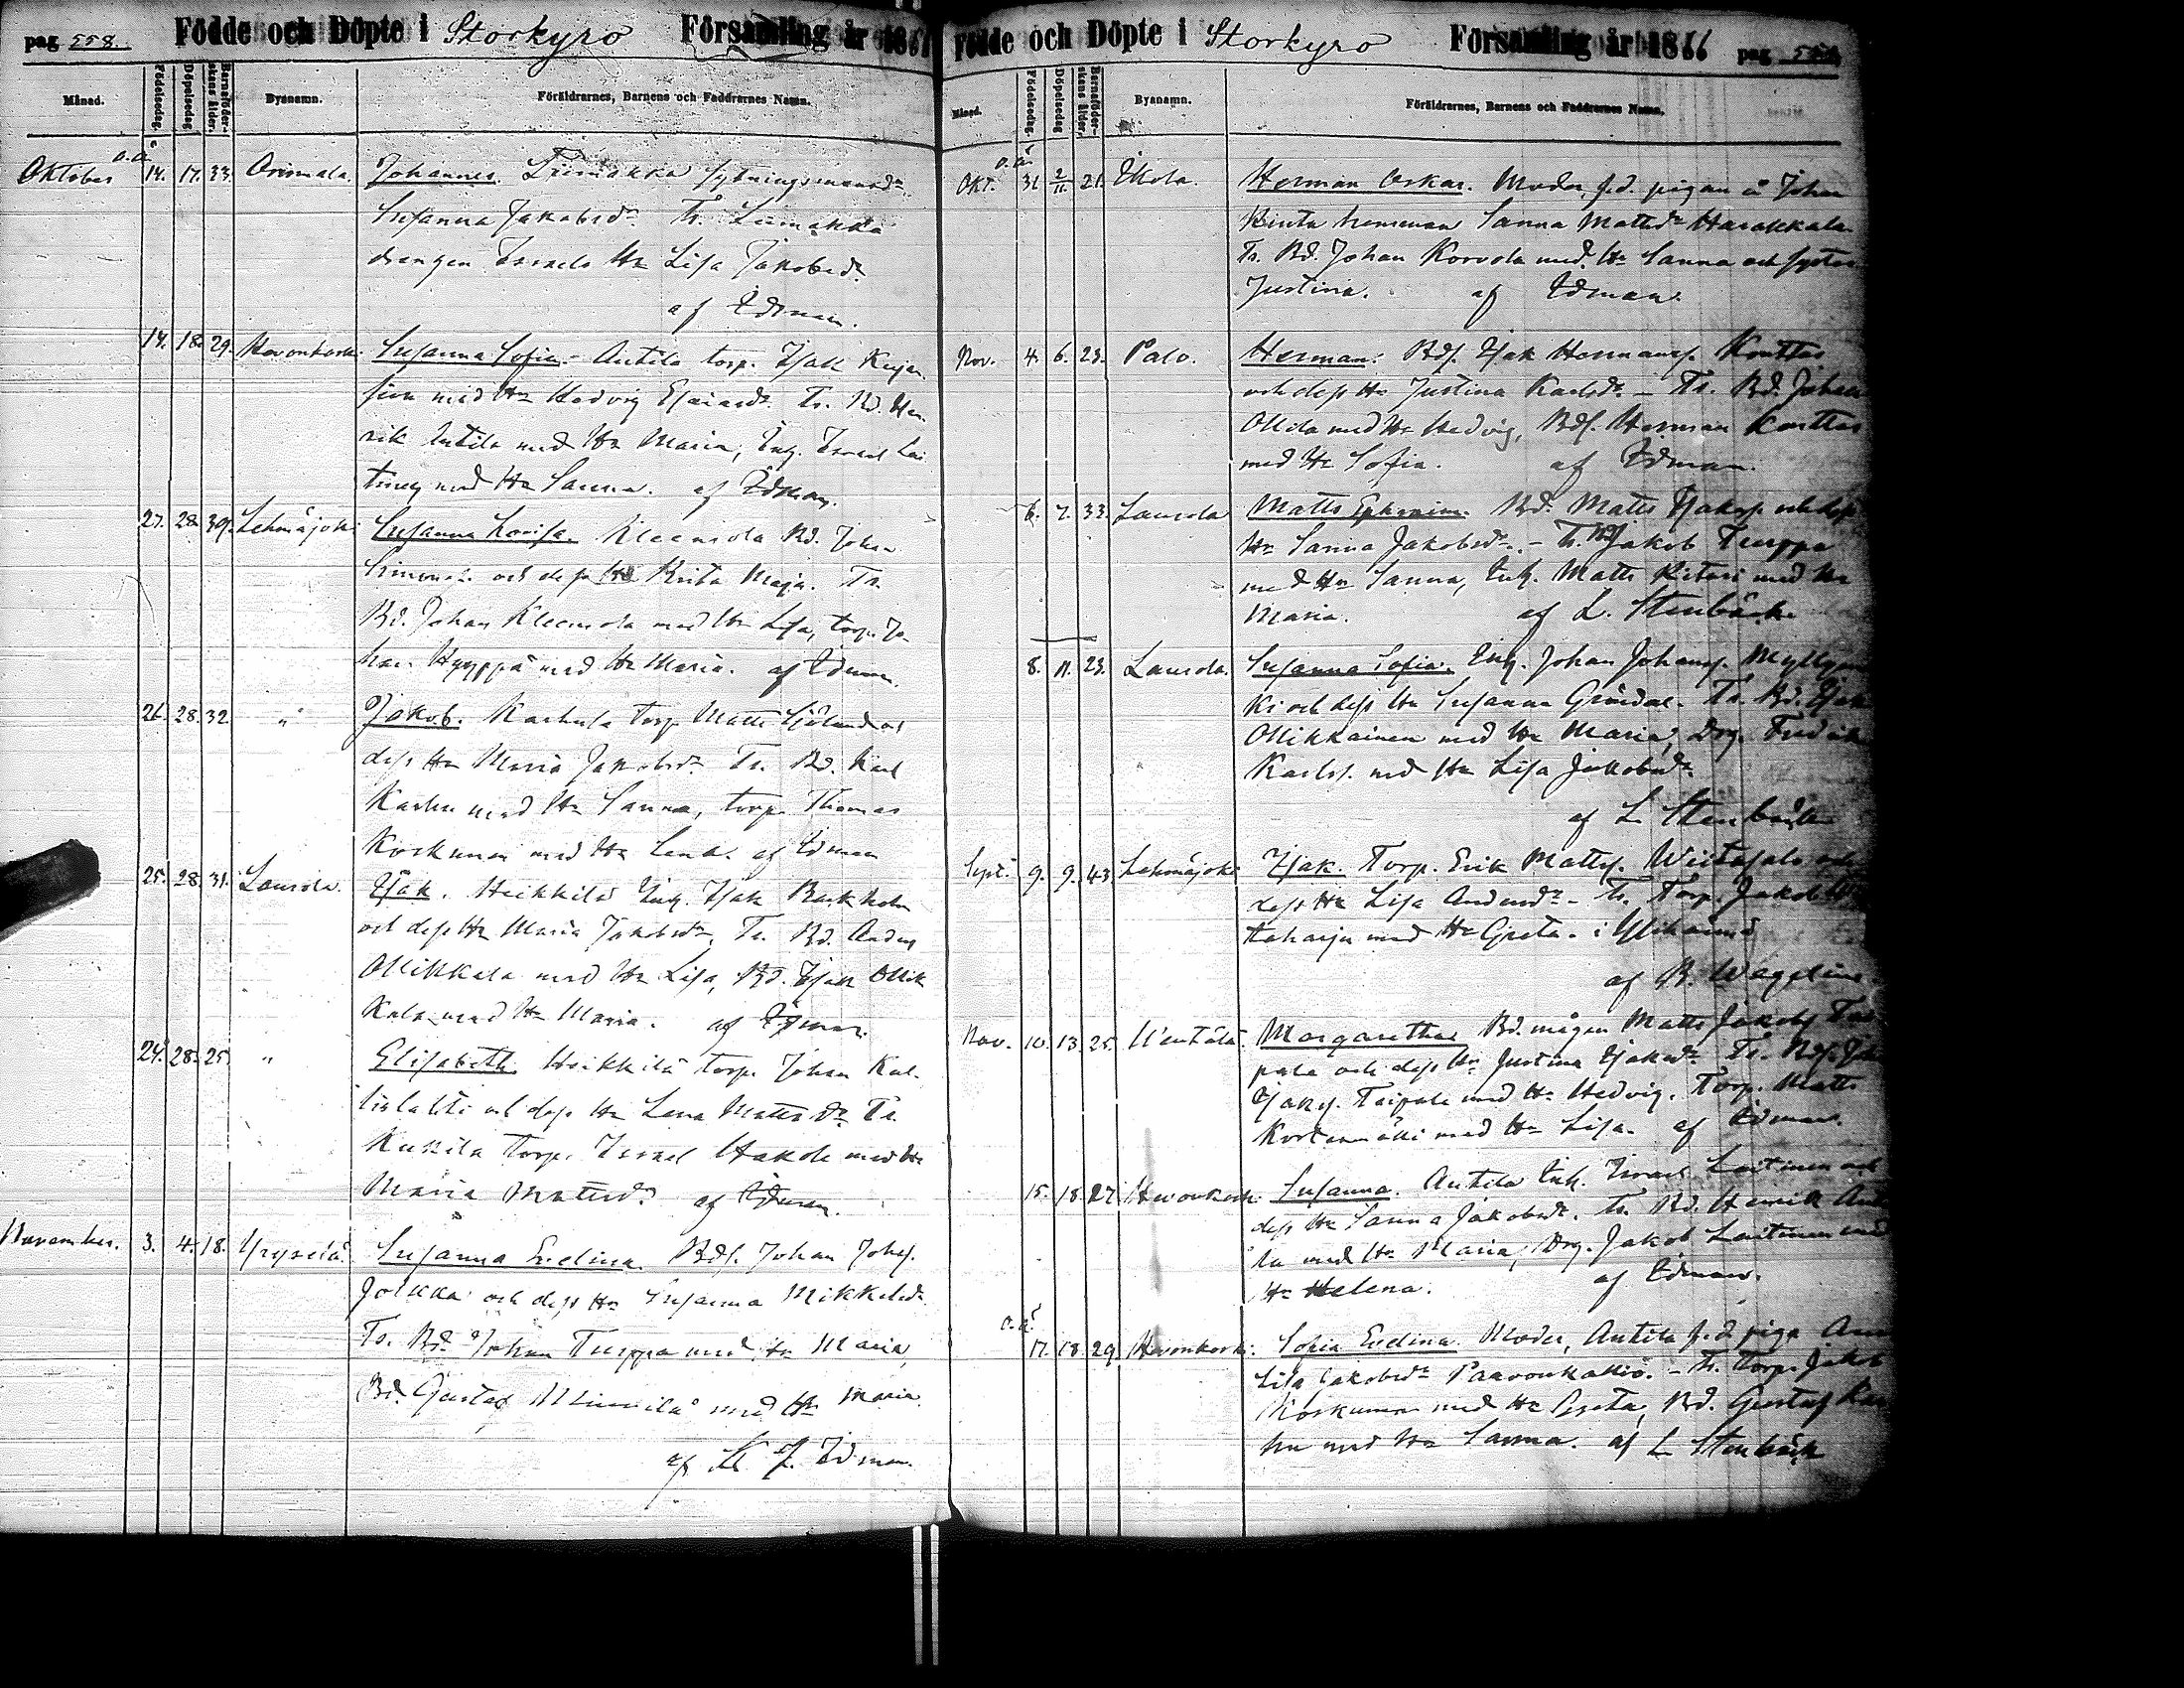 pag 558. Födde och Döpte i Storkyro Församling år 1866
Månad. Födelsedag. Döpelsedag Barnaföderskans ålder. Bynamn. Föräldrarnes, Barnens och Faddrarnes Namn.
Oktober o.ä. 14. 17. 33. Orismala. Johannes. Liimakka sytningsmansdr
Susanna Jakobsdr Ts. Liimakka
drengen Israels Hu Lisa Jakobsdr
af Edman.
14. 18. 29. Hevonkoski Susanna Sofia. Antila torp. Isak
med Hu Hedvig Esaiasdr Ts. Bd. Hen
rik Antila med Hu Maria, Inh. Israel Lai
tinen med Hu Sanna. af Edman.
27. 28. 39. Lehmäjoki Susanna Lovisa. Kleemola Bd. Johan
Simons. och dess Hu Brita Maja. Ts.
Bd. Johan Kleemola med Hu Lisa, torp. Jo
han Hyyppä med Hu Maria. af Edman.
26. 28. 32. " Jakob. Karhula torp. Matts Sjölund och
dess Hu Maria Jakobsdr Ts. Bd. Karl
Karhu med Hu Sanna, torp. Thomas
Koskinen med Hu Lena. af Edman
25. 28. 31. Laurola. Isak. Heikkilä Inh. Isak Backholm
och dess Hu Maria Jakobsdr. Ts. Bd. Anders
Ollikkala med Hu Lisa, Bd. Isak Ollik
kala med Hu Maria. af Edman.
24. 28. 25. " Elisabeth. Heikkilä torp. Johan Kal
liolahti och dess Hu Lena Mattsdr Ts.
Kukkila torp. Israel Hakola med Hu
Maria Mattsdr af Edman.
November. 3. 4. 18. Yryselä. Susanna Evelina. Bds. Johan Johss.
Jolkka och dess Hu Susanna Mikkelsdr
Ts. Bd. Johan Turppa med Hu Maria,
Bd. Gustaf Ninimilä med Hu Maria.
af K. J. Edman.
Födde och Döpte i Storkyro Församling år 1866 pag
Månad. Födelsedag. Döpelsedag Barnaföderskans ålder. Bynamn. Föräldrarnes, Barnens och Faddrarnes Namn.
Okt. o.ä. 31 2/11. 21. Ikola. Herman Oskar. Moder f.d. pigan å Johan
Kinta hemman Sanna Mattsdr Harakkala
Ts. Bd. Johan Korvola med Hu Sanna och syster
Justina. af Edman.
Nov. 4. 6. 23. Palo. Herman. Bds. Isak Hermanss. Konttas
och dess Hu Justina Karlsdr. - Ts. Bd. Johan
Ollila med Hu Hedvig, Bds. Herman Konttas
med Hu Sofia. af Edman.
6. 7. 33. Laurola Matts Ephraim. Bd. Matts Isakss. och dess
Hu Sanna Jakobsdr. - Ts. Bd. Jakob Turppa
med Hu Sanna, Inh. Matts Kitari med Hu
Maria. af L. Stenbäck
8. 11. 23. Laurola. Susanna Sofia. Inh. Johan Johanss. Myllymä
ki och dess Hu Susanna Gröndal. Ts. Bd. Isak
Ollikkainen med Hu Maria, Drg. Fredrik
Karlss. med Hu Lisa Jakobsdr
af L Stenbäck
Sept. 9. 9. 43. Lehmäjoki Isak. Torp. Erik Mattss. Wiitasalo och
dess Hu Lisa Andersdr - Ts. Torp. Jakob
taharju med Hu Greta. i Ylihärmä
af B. Wegelius
Nov. 10. 13. 25. Wentälä. Margaretha. Bd. mågen Matts Jakobs. Tai
pale och dess Hu Justina Isaksdr Ts. Bds. Joh
Isakss. Taipale med Hu Hedvig. Torp. Matts
med Hu Lisa. af Edman.
15. 18. 27. Hevonkoski. Susanna. Antila Inh. Israel Laitinen och
dess Hu Sanna Jakobsdr. Ts. Bd. Henrik Anti
la med Hu Maria, Drg. Jakob Laitinen med
Hu Helena. af Edman.
o.ä. 17. 18. 29. Hevonkoski. Sofia Evelina. Moder, Antila f.d. piga Ann
Lisa Jakobsdr Paavonkallio. - Ts. Torp. Jakob
Koskinen med Hu Greta, Bd. Gustaf Kar
hu med Hu Sanna. af L Stenbäck